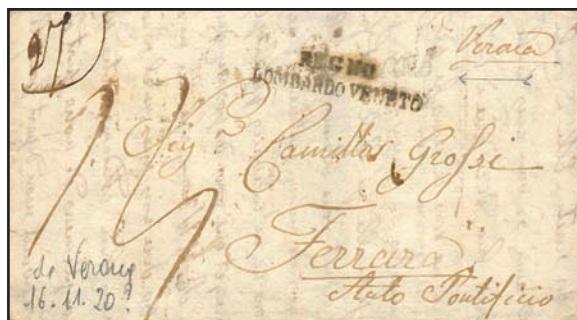 REGNO
LOMBARDO VENETO
Sig.r Camillo Grossi
Ferrara
Stato Pontificio
da Verona
16.11.20?